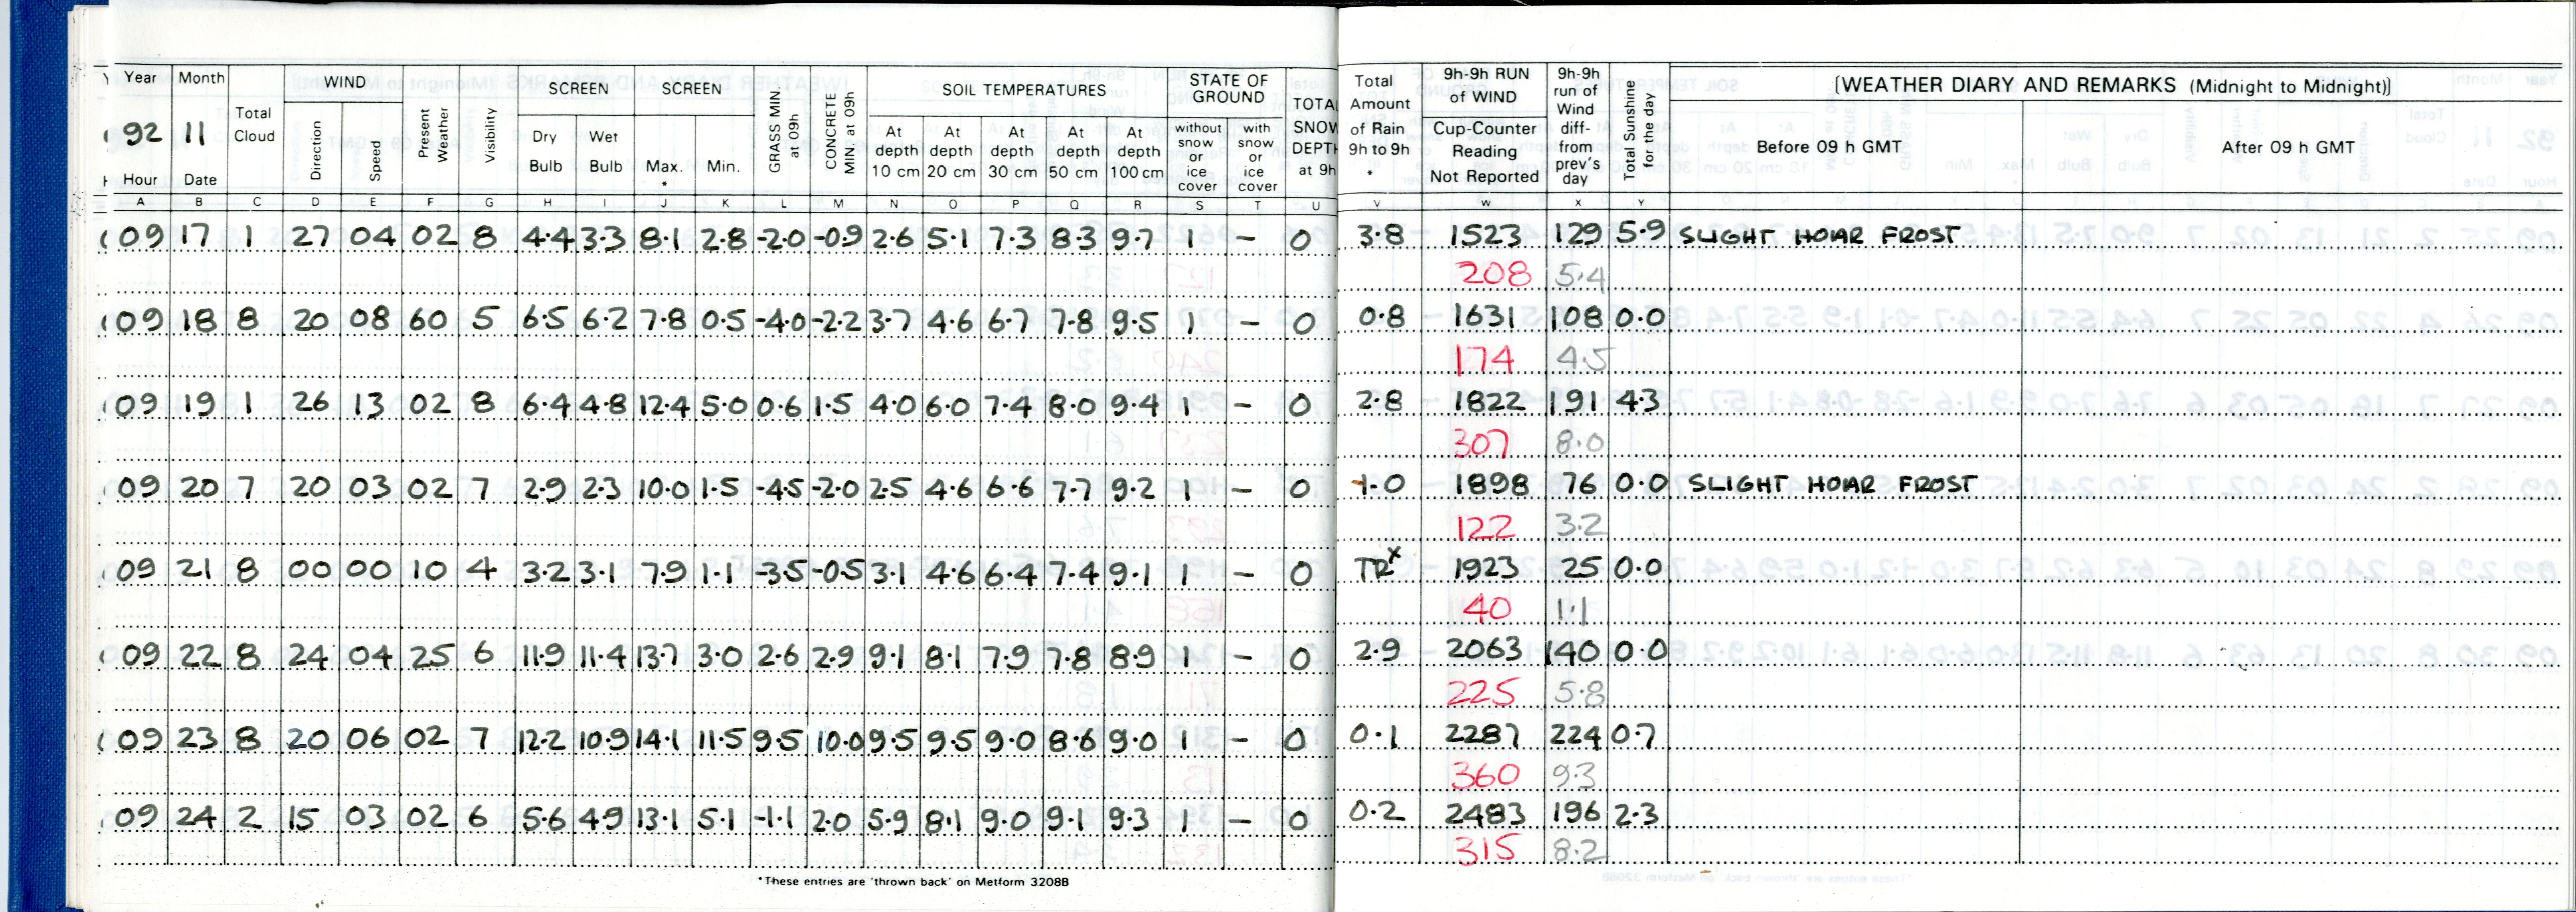 Year Month Total Cloud WIND Present Weather Visibility SCREEN SCREEN GRASS MIN. at 09h CONCRETE MIN. at 09h SOIL TEMPERATURES STATE OF GROUND TOTAL SNOW DEPTH at 9h Total Amount of Rain 9h to 9h * 9h-9h RUN of WIND 9h-9h run of Wind diff- from prev's day Total Sunshine for the day [WEATHER DIARY AND REMARKS (Midnight to Midnight)]
92 11 Direction Speed Dry Bulb Wet Bulb Max. * Min. At depth 10 cm At depth 20 cm At depth 30 cm At depth 50 cm At depth 100 cm without snow or ice cover with snow or ice cover Cup-Counter Reading Not Reported Before 09 h GMT After 09 h GMT
Hour Date
A B C D E F G H I J K L M N O P Q R S T U V W X Y
09 17 1 27 04 02 8 4.4 3.3 8.1 2.8 -2.0 -0.9 2.6 5.1 7.3 8.3 9.7 1 - 0 3.8 1523 129 5.9 SLIGHT HOAR FROST
208 5.4
09 18 8 20 08 60 5 6.5 6.2 7.8 0.5 -4.0 -2.2 3.7 4.6 6.7 7.8 9.5 1 - 0 0.8 1631 108 0.0
174 4.5
09 19 1 26 13 02 8 6.4 4.8 12.4 5.0 0.6 1.5 4.0 6.0 7.4 8.0 9.4 1 - 0 2.8 1822 191 4.3
307 8.0
09 20 7 20 03 02 7 2.9 2.3 10.0 1.5 -4.5 -2.0 2.5 4.6 6.6 7.7 9.2 1 - 0 1.0 1898 76 0.0 SLIGHT HOAR FROST
122 3.2
09 21 8 00 00 10 4 3.2 3.1 7.9 1.1 -3.5 -0.5 3.1 4.6 6.4 7.4 9.1 1 - 0 TR x 1923 25 0.0
40 1.1
09 22 8 24 04 25 6 11.9 11.4 13.7 3.0 2.6 2.9 9.1 8.1 7.9 7.8 8.9 1 - 0 2.9 2063 140 0.0
225 5.8
09 23 8 20 06 02 7 12.2 10.9 14.1 11.5 9.5 10.0 9.5 9.5 9.0 8.6 9.0 1 - 0 0.1 2287 224 0.7
360 9.3
09 24 2 15 03 02 6 5.6 4.9 13.1 5.1 -1.1 2.0 5.9 8.1 9.0 9.1 9.3 1 - 0 0.2 2483 196 2.3
315 8.2
*These entries are 'thrown back' on Metform 3208B